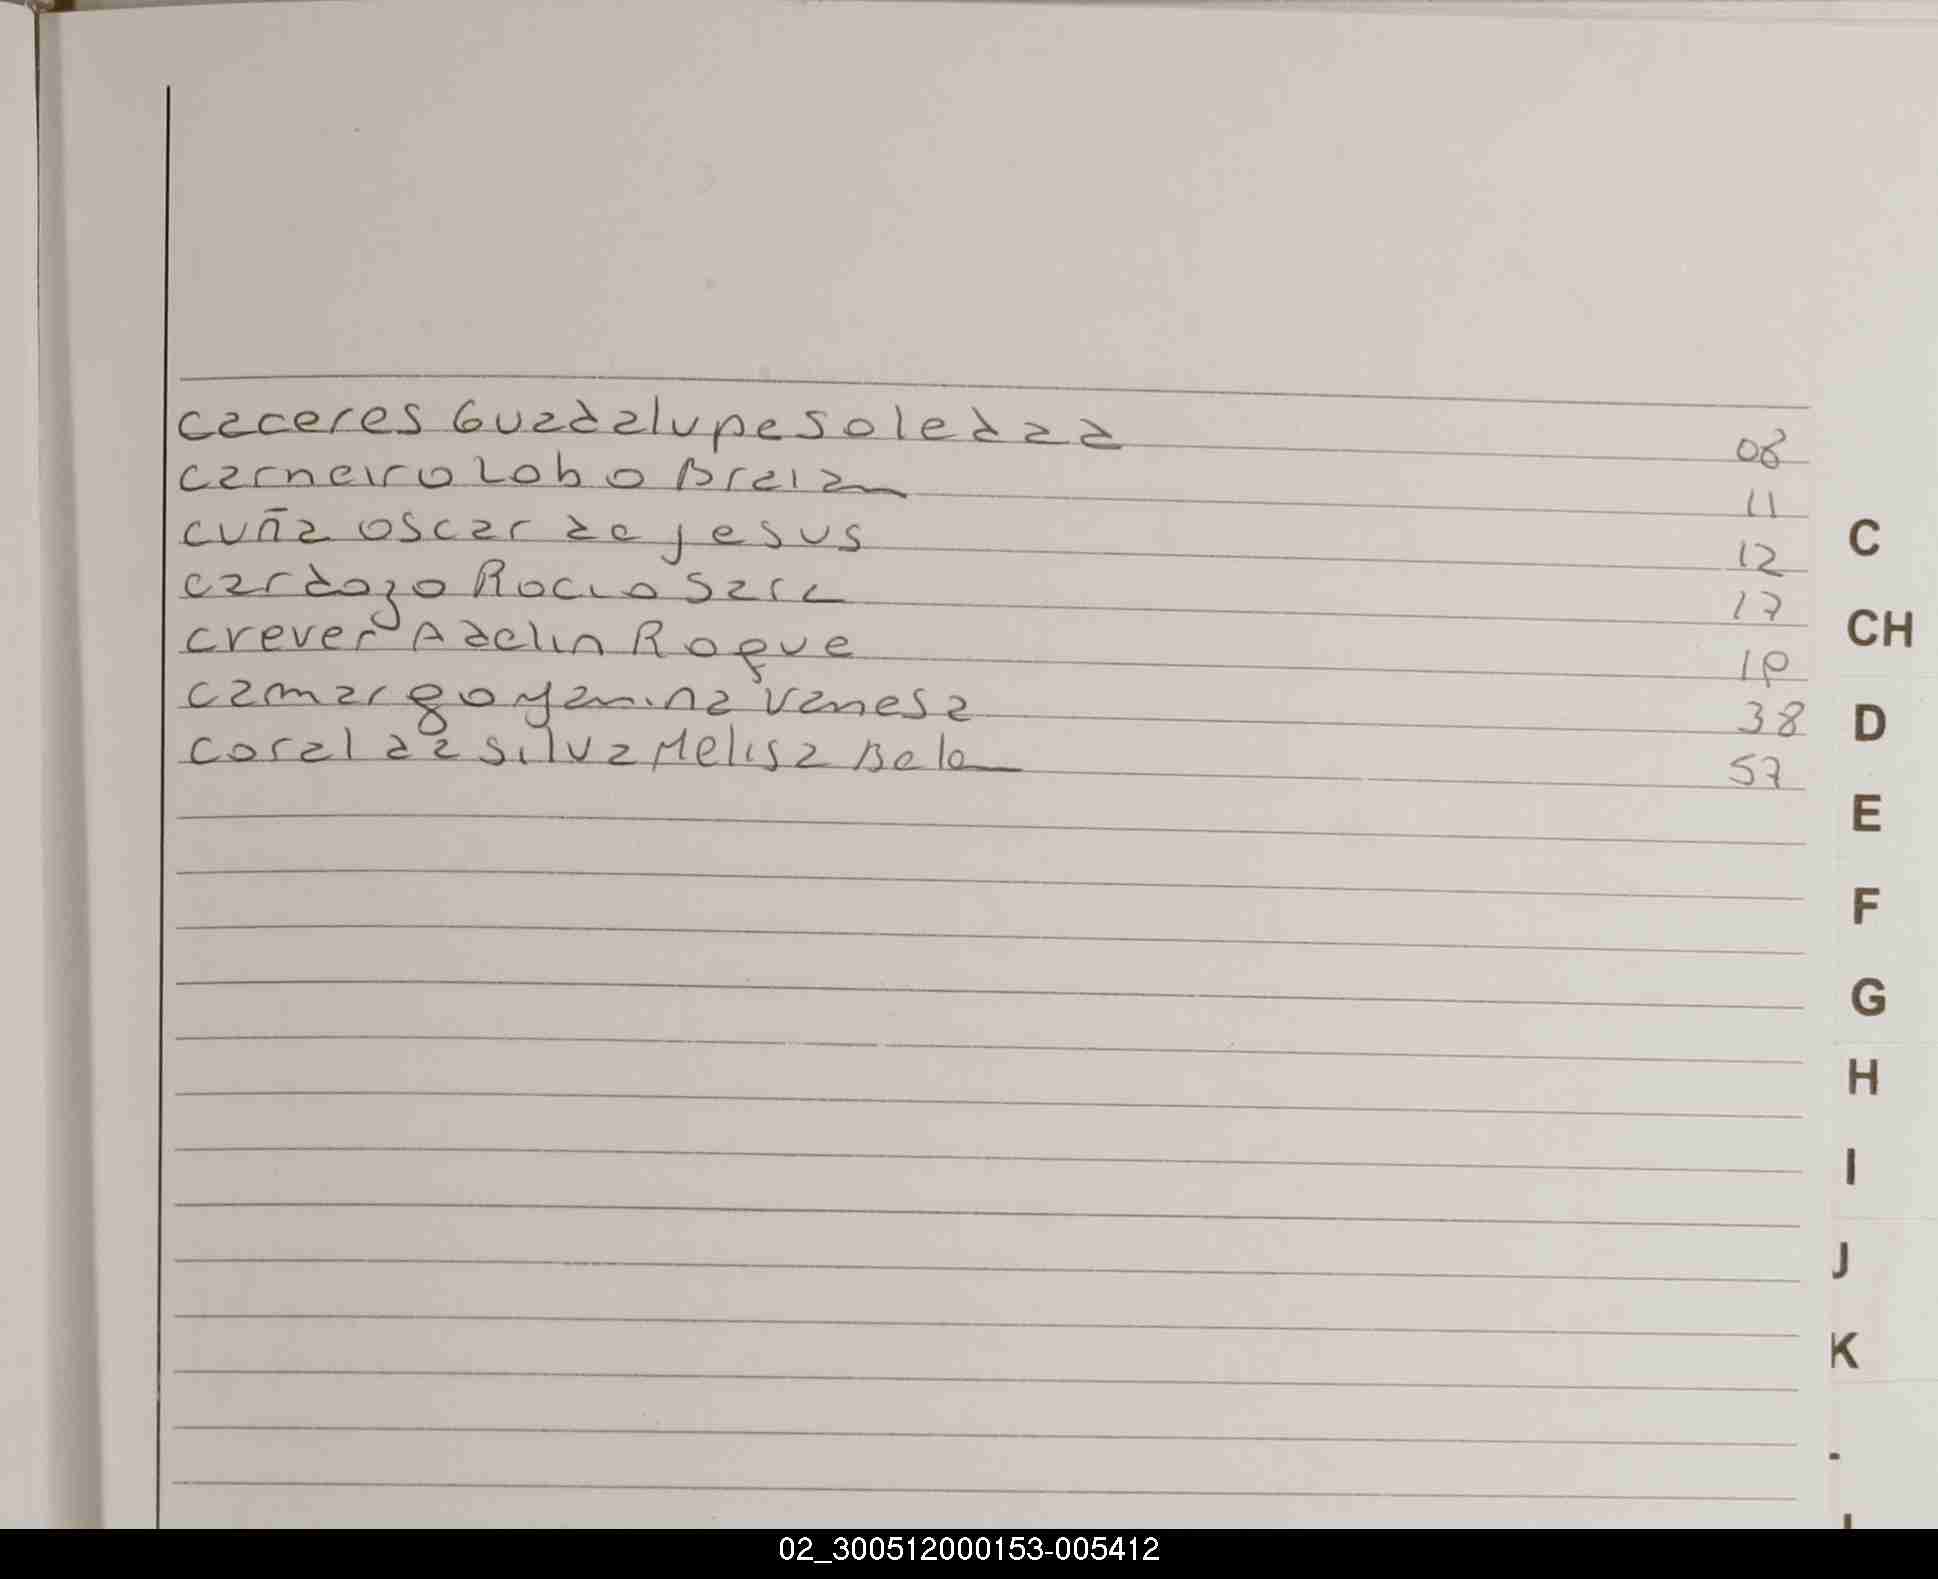 caceres Guadalupe Soledad 08
carneiro Lobo Braian 11
cuña oscar de jesus 12
cardozo Rocio Sara 17
C
CH
crever Adelin Roque 18
camargo yamina vanesa 38
D
coral da silva Melisa Belen 57
E
F
G
H
I
J
K
02_300512000153-005412